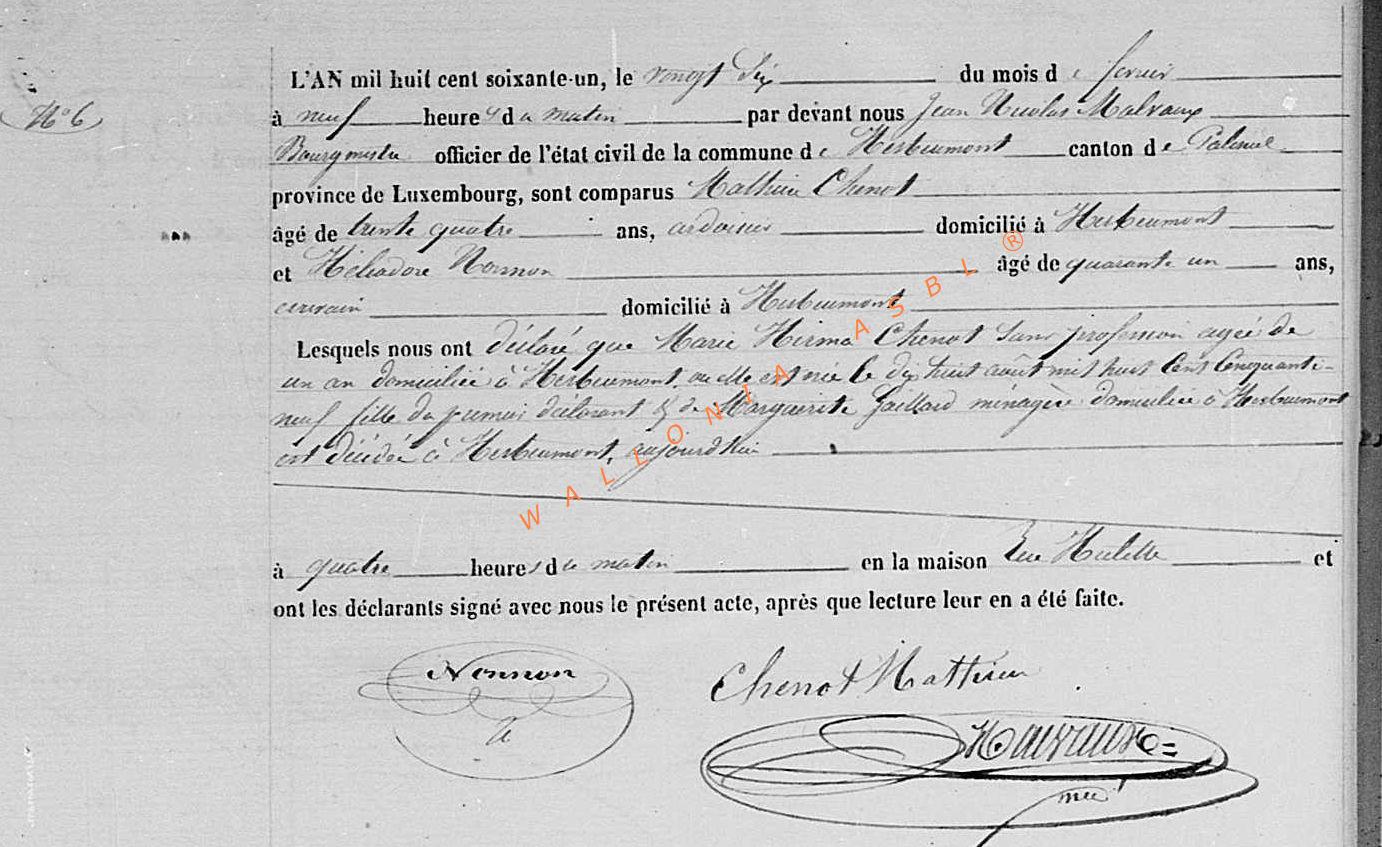 N° 6
L'AN mil huit cent soixante-un, le vingt six du mois de fevrier
à neuf heures du matin par devant nous Jean Nicolas Malvaux
Bourgmestre officier de l'état civil de la commune de Herbeumont canton de Paliseul
province de Luxembourg, sont comparus Mathieu Chenot
âgé de trente quatre ans, ardoisier domicilié à Herbeumont
et Héliodore Nonnon âgé de quarante un ans,
écrivain domicilié à Herbeumont
Lesquels nous ont déclaré que Marie Hirma Chenot sans profession agée de
un an domiciliée à Herbeumont, où elle est née le dix huit août mil huit cent cinquante-
neuf fille du premier déclarant & de Marguerite Gaillard ménagère domiciliée à Herbeumont
est décédée à Herbeumont, aujourd'hui
à quatre heures du matin en la maison Rue Hulette et
ont les déclarants signé avec nous le présent acte, après que lecture leur en a été faite.
Nonnon Chenot Mathieu
WALLONIA ASBL ®